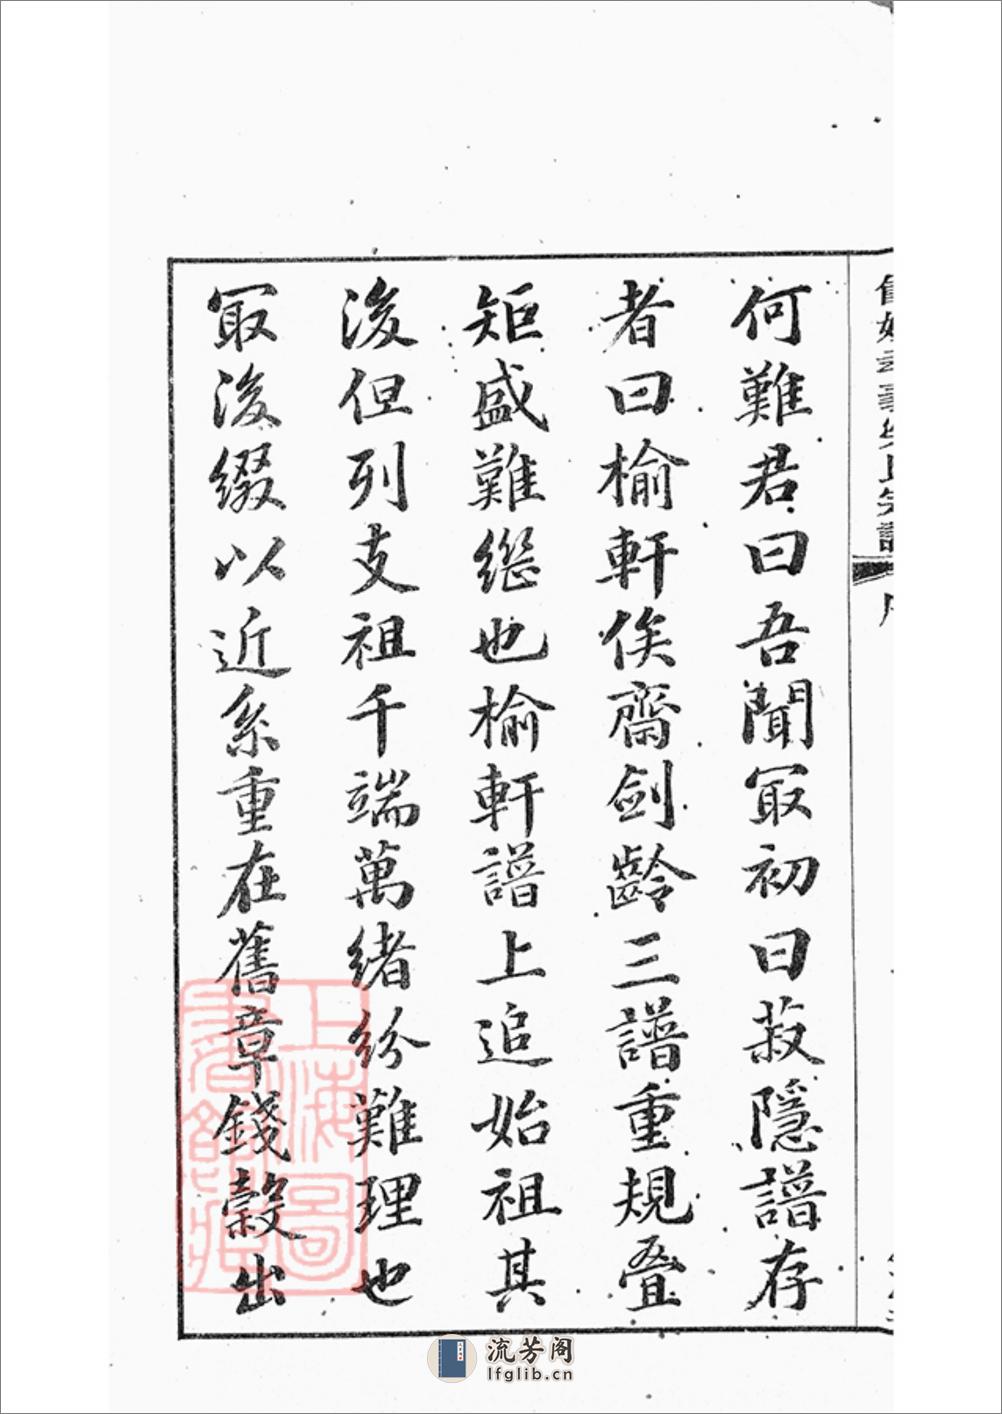 何難君曰吾聞冣初曰菽隱譜存
者曰榆軒俟齋劍齡三譜重規疊
矩盛難繼也榆軒譜上追始祖其
後但列支祖千端萬緒紛難理也
冣後綴以近系重在舊章錢穀出
上海圖
書館藏
流芳阁
lfglib.cn